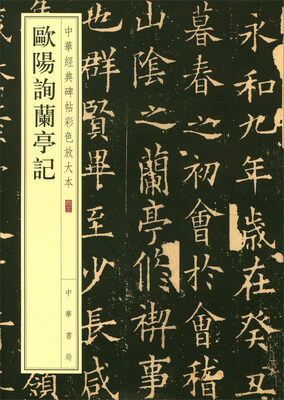 永和九年歲在癸丑
暮春之初會於會稽
山陰之蘭亭修禊事
也群賢畢至少長咸
領
中華經典碑帖彩色放大本
歐陽詢蘭亭記
中華書局